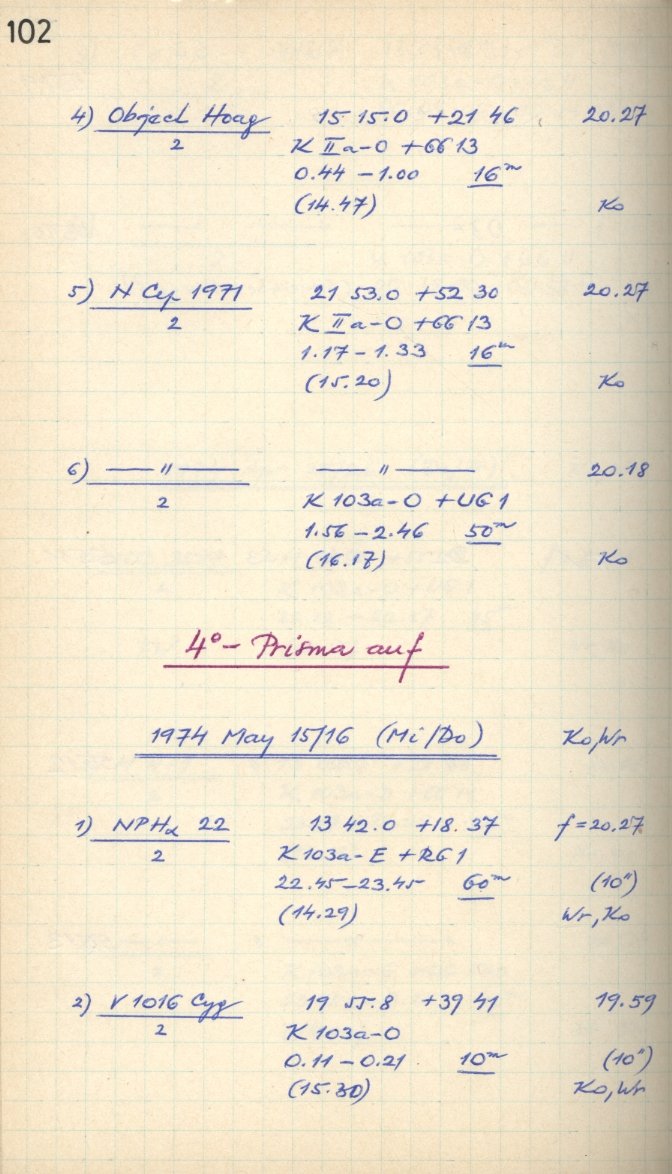 102
4) Object Hoag 15 15.0 +21 46 20.27
2 K IIa-O + GG 13
0.44 - 1.00 16m
(14.47) Ko
5) N Cep 1971 21 53.0 +52 30 20.27
2 K IIa-O + GG 13
1.17 - 1.33 16m
(15.20) Ko
6) — " — — " — 20.18
2 K 103a-O + UG 1
1.56 - 2.46 50m
(16.17) Ko
4° - Prisma auf
1974 May 15/16 (Mi/Do) Ko, Wr
1) NPHα 22 13 42.0 +18.37 f = 20.27
2 K 103a-E + RG 1
22.45 - 23.45 60m (10")
(14.29) Wr, Ko
2) V 1016 Cyg 19 55.8 +39 41 19.59
2 K 103a-O
0.11 - 0.21 10m (10")
(15.30) Ko, Wr